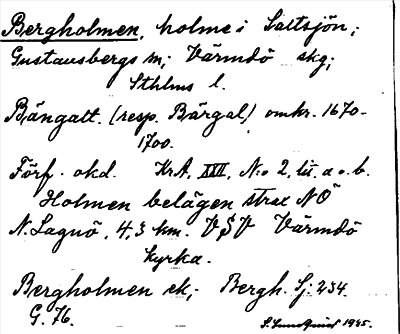 Bergholmen, holme i Saltsjön;
Gustavsbergs sn; Värmdö skg;
Sthlms l.
Bängatt. (resp. Bärgal) omkr. 1670-
1700.
Förf. okd. KrA, XXII, No 2, lit. a o. b.
Holmen belägen strax NÖ
N. Lagnö, 4,3 km. VSV Värmdö
kyrka.
Bergholmen ek; Bergh. Sj: 234.
G. 76. S. Lundquist 1925.